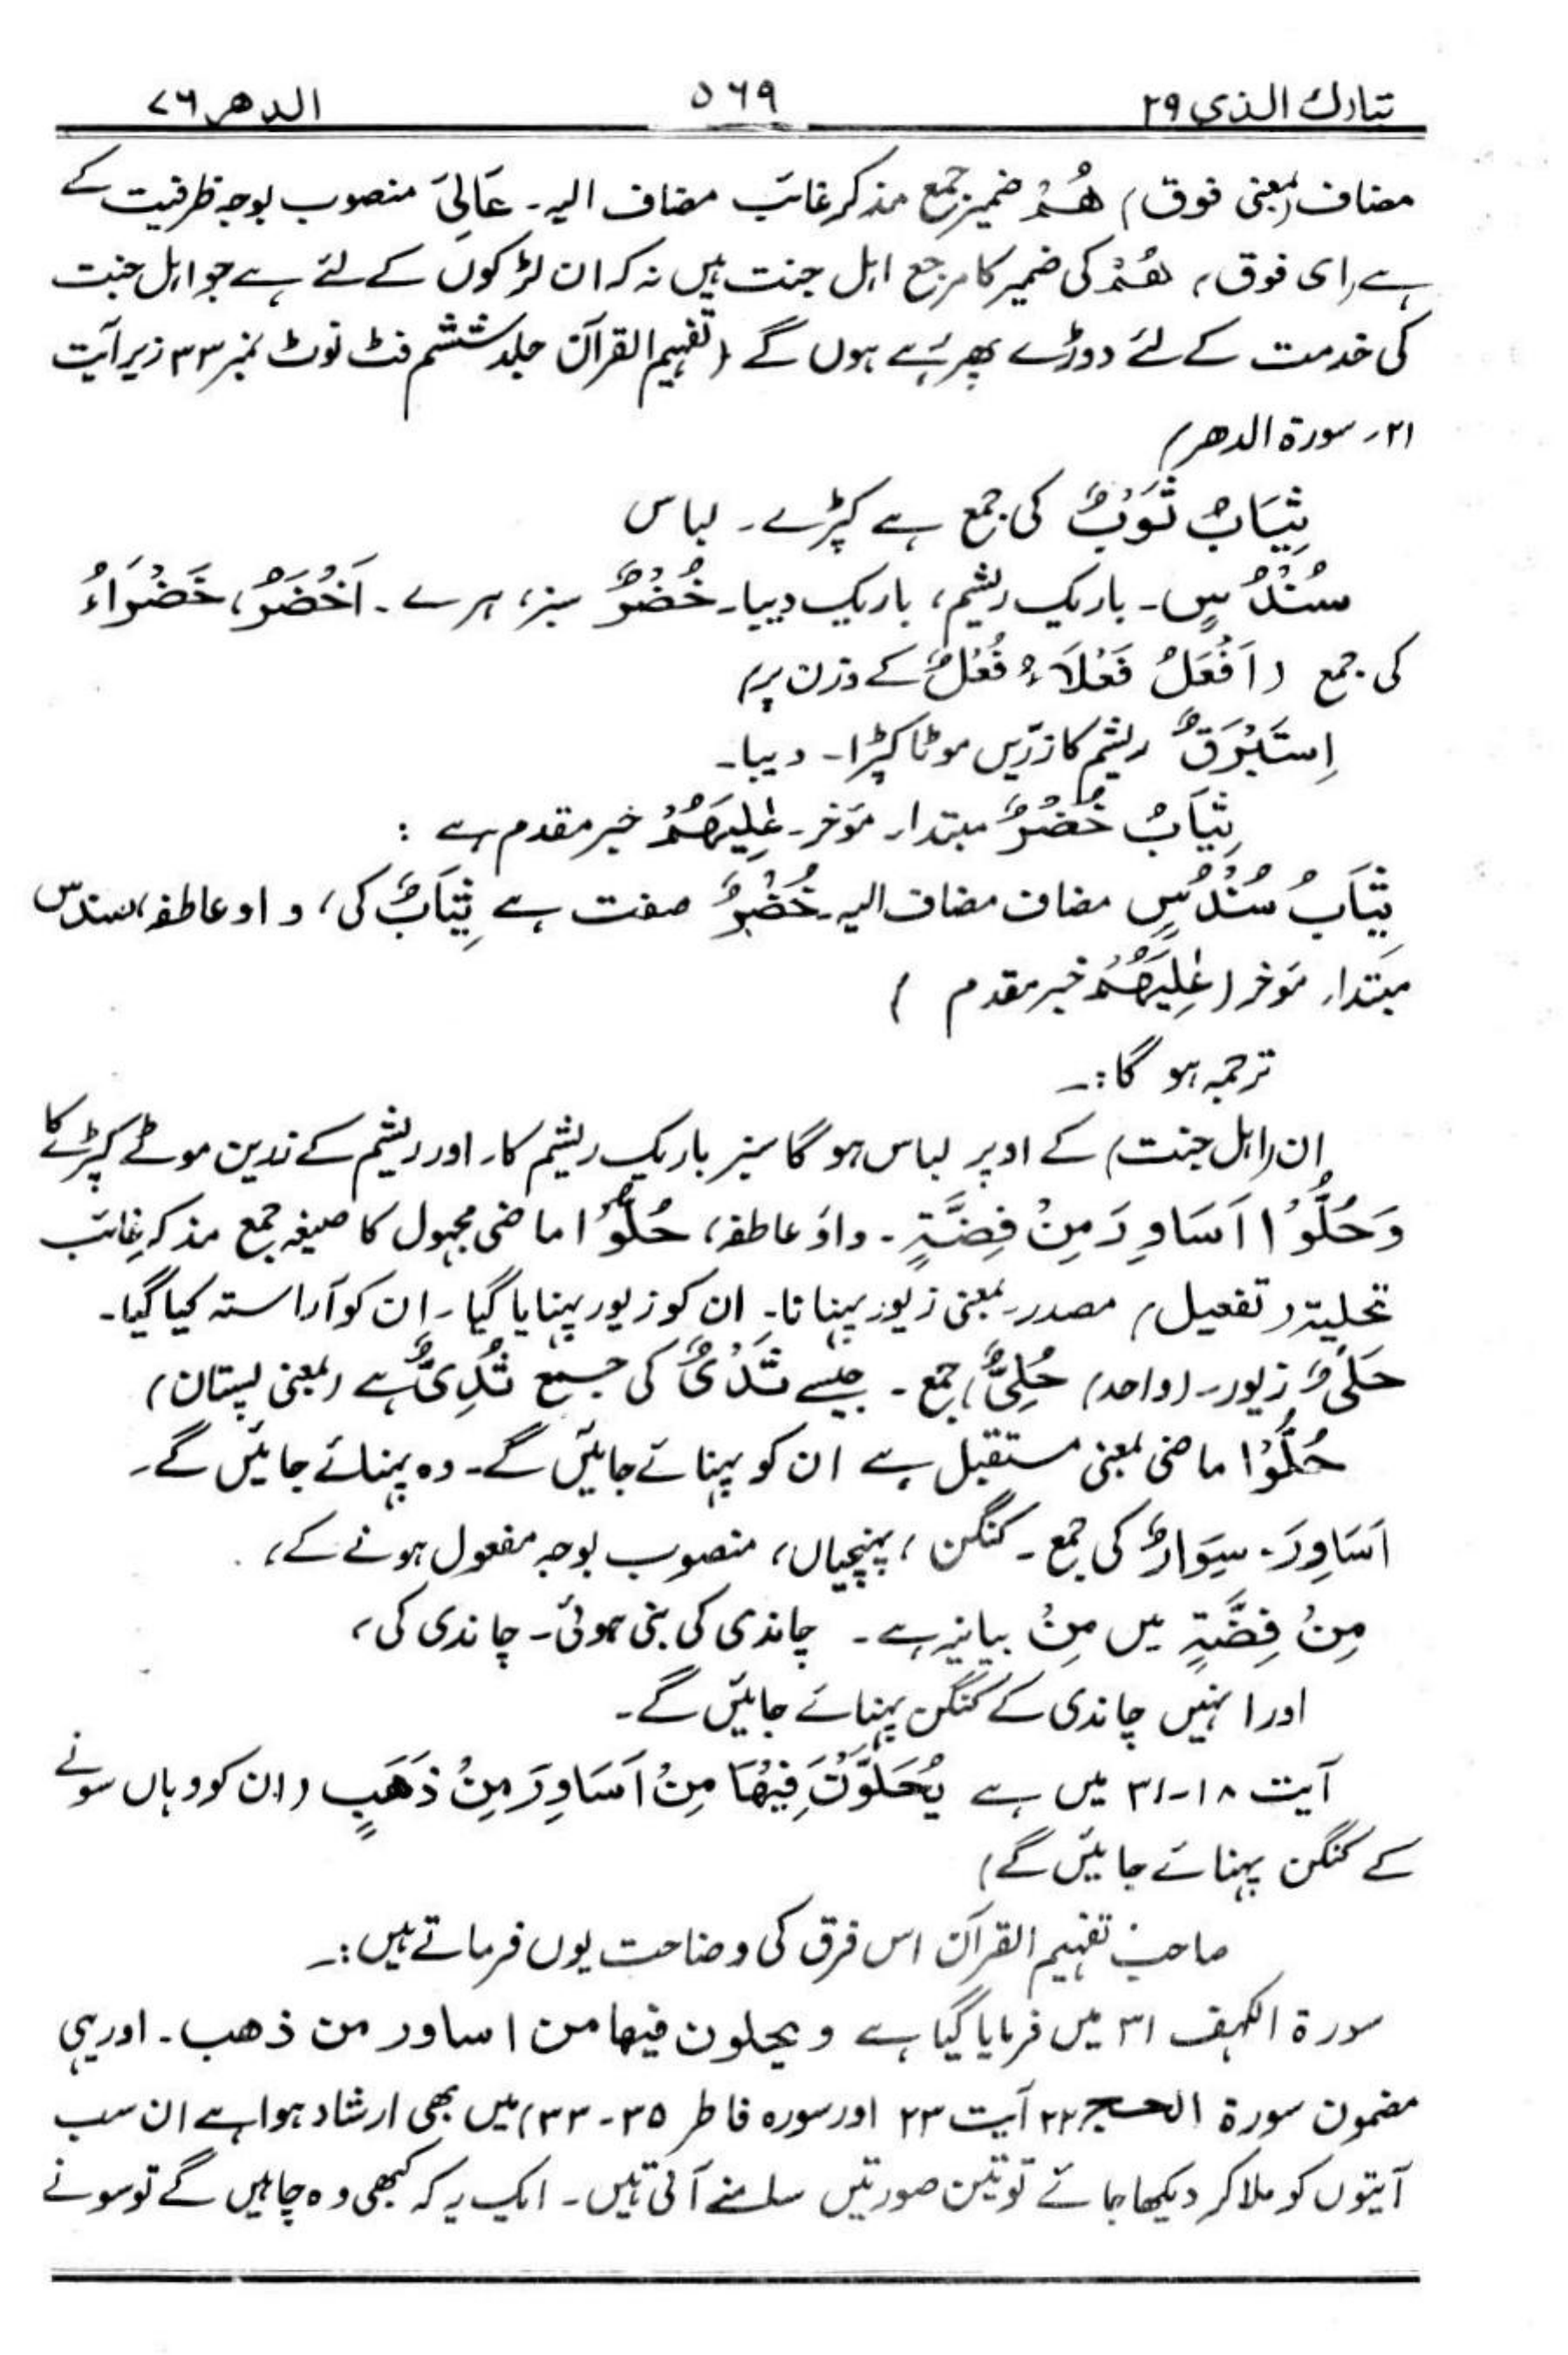 تبارك الذی ۲۹ ۵۶۹ الدھر ۷۶
مضاف (بمعنی فوق) ھُمْ ضمیر جمع مذکر غائب مضاف الیہ۔ عَالِیَ منصوب بوجہ ظرفیت کے
ہے (ای فوق، ھُمْ کی ضمیر کا مرجع اہل جنت ہیں نہ کہ ان لڑکوں کے لئے ہے جو اہل جنت
کی خدمت کے لئے دوڑے پھر رہے ہوں گے (تفہیم القرآن جلد ششم فٹ نوٹ نمبر ۳۳ زیر آیت
۲۱، سورۃ الدھر)
ثِیَابٌ ثَوْبٌ کی جمع ہے کپڑے۔ لباس
سُنْدُسٍ۔ باریک ریشم، باریک دیبا۔ خُضْرٌ سبز، ہرے۔ اَخْضَرُ، خَضْرَاءُ
کی جمع (اَفْعَلُ فَعْلَاءُ فُعْلٌ کے وزن پر)
اِسْتَبْرَقٌ ریشم کا زرّیں موٹا کپڑا۔ دیبا۔
ثِیَابُ خُضْرٌ مبتدار مؤخر۔ عٰلِیَھُمْ خبر مقدم ہے :
ثِیَابُ سُنْدُسٍ مضاف مضاف الیہ۔ خُضْرٌ صفت ہے ثِیَابٌ کی، واو عاطفہ، سندس
مبتدار مؤخر (عٰلِیَھُمْ خبر مقدم )
ترجمہ ہو گا:۔
ان (اہل جنت) کے اوپر لباس ہو گا سبز باریک ریشم کا، اور ریشم کے زرین موٹے کپڑے کا
وَحُلُّوْا اَسَاوِرَ مِنْ فِضَّۃٍ۔ واؤ عاطفہ، حُلُّوْا ماضی مجہول کا صیغہ جمع مذکر غائب
تحلیۃ (تفعیل) مصدر۔ بمعنی زیور پہنانا۔ ان کو زیور پہنایا گیا۔ ان کو آراستہ کیا گیا۔
حَلْیٌ زیور۔ (واحد) حُلِیٌّ، جمع۔ جیسے ثَدْیٌ کی جمع ثُدِیٌّ ہے (بمعنی پستان)
حُلُّوْا ماضی بمعنی مستقبل ہے ان کو پہنائے جائیں گے۔ وہ پہنائے جائیں گے۔
اَسَاوِرَ۔ سِوَارٌ کی جمع۔ کنگن، پہنچیاں، منصوب بوجہ مفعول ہونے کے،
مِنْ فِضَّۃٍ میں مِنْ بیانیہ ہے۔ چاندی کی بنی ہوئی۔ چاندی کی،
اور انہیں چاندی کے کنگن پہنائے جائیں گے۔
آیت ۱۸-۳۱ میں ہے یُحَلَّوْنَ فِیْھَا مِنْ اَسَاوِرَ مِنْ ذَھَبٍ (ان کو وہاں سونے
کے کنگن پہنائے جائیں گے)
صاحب تفہیم القرآن اس فرق کی وضاحت یوں فرماتے ہیں:۔
سورۃ الکہف ۳۱ میں فرمایا گیا ہے و یحلون فیھا من اساور من ذھب۔ اور یہی
مضمون سورۃ الحج ۲۲ آیت ۲۳ اور سورہ فاطر ۳۵-۳۳) میں بھی ارشاد ہوا ہے ان سب
آیتوں کو ملا کر دیکھا جائے تو تین صورتیں سامنے آتی ہیں۔ ایک یہ کہ کبھی وہ چاہیں گے تو سونے